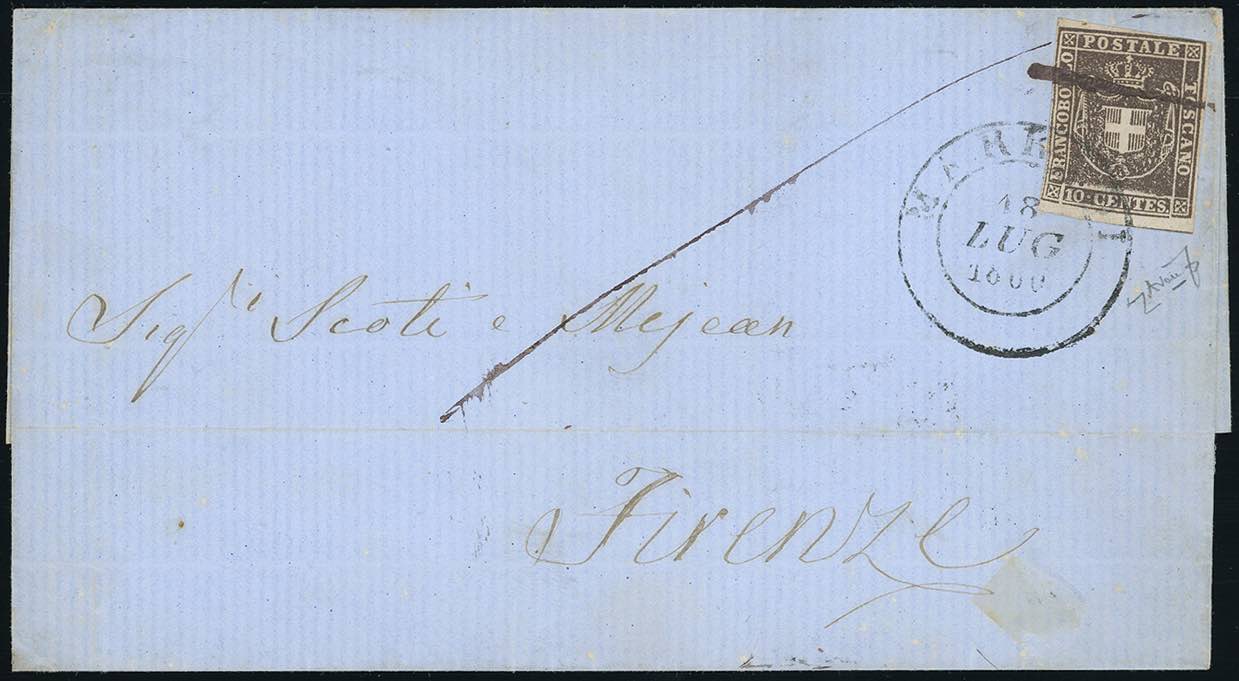 FRANCOBOLLO POSTALE TOSCANO
10 CENTES
18
LUG
Sigri Scoti e Mejean
Firenze